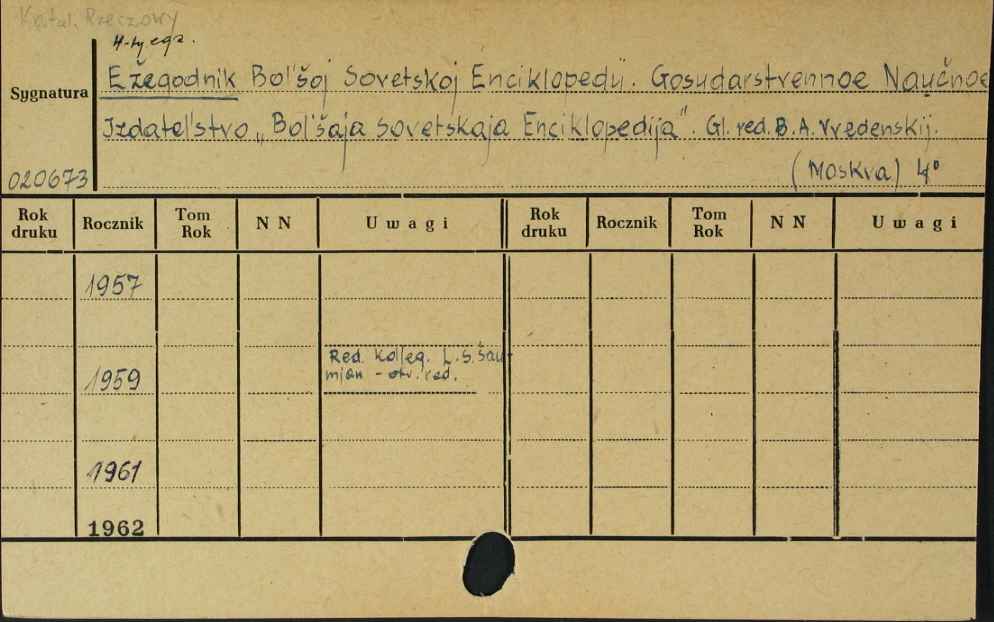 Katal. Rzeczowy
4-ty egz.
Ežegodnik Bol'šoj Sovetskoj Enciklopedii. Gosudarstvennoe Naučnoe
Sygnatura
Izdatel'stvo „Bol'šaja Sovetskaja Enciklopedija". Gl. red. B. A. Vvedenskij.
020673
(Moskva) 4°
Rok druku Rocznik Tom Rok N N Uwagi Rok druku Rocznik Tom Rok N N Uwagi
1957
Red. Kolleg. L. S. Šau-
1959 mjan - otv. red.
1961
1962